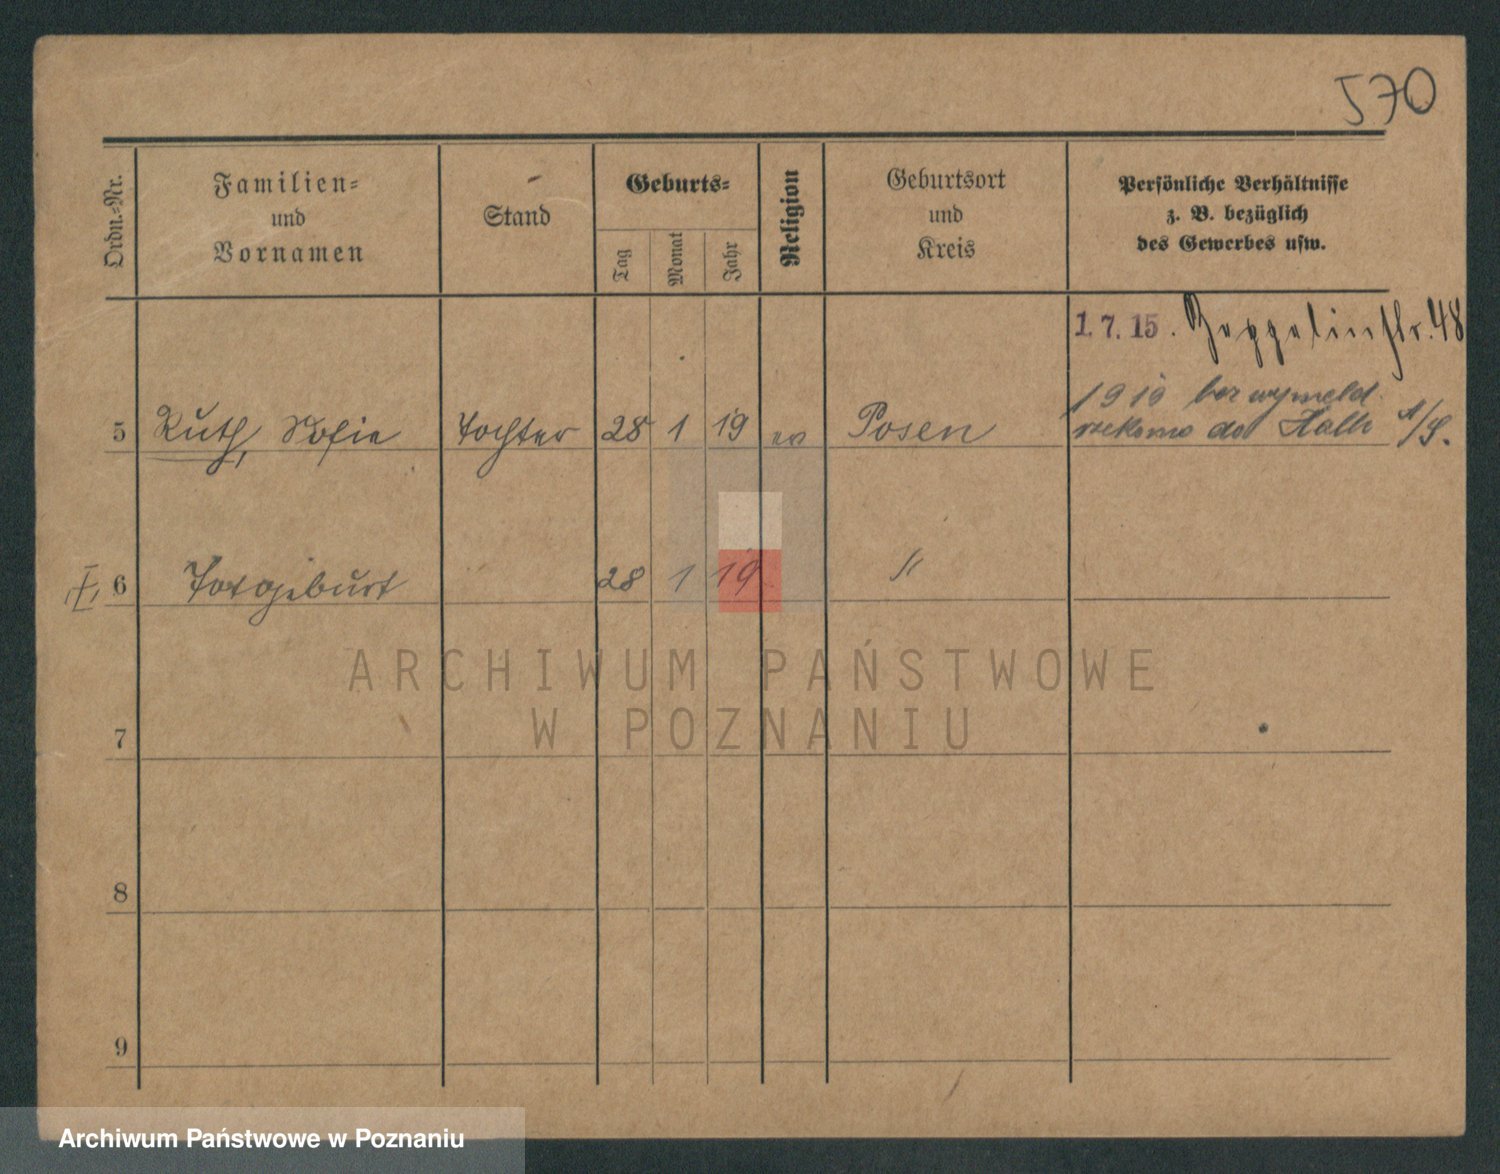 570
Ordn.=Nr.
Familien=
und
Vornamen
Stand
Geburts=
Tag
Monat
Jahr
Religion
Geburtsort
und
Kreis
Persönliche Verhältnisse
z. B. bezüglich
des Gewerbes usw.
1.7.15. Zeppelinstr. 48
1919 bez wymeld.
5 Ruth, Sofie Tochter 28 1 19 ev Posen rzekomo do Halle a/S.
6 Totgeburt 28 1 19 "
ARCHIWUM PAŃSTWOWE
W POZNANIU
7
8
9
Archiwum Państwowe w Poznaniu